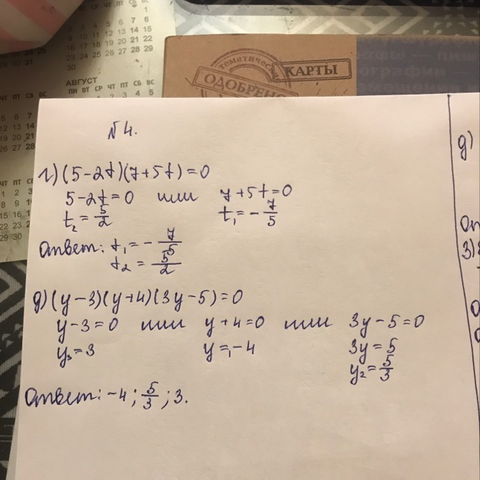 АВГУСТ
тематические
КАРТЫ
ОДОБРЕНО
№4.
г) (5-2t)(7+5t)=0
5-2t=0 или 7+5t=0
t₂=5/2 t₁=-7/5
Ответ: t₁=-7/5
t₂=5/2
д) (y-3)(y+4)(3y-5)=0
y-3=0 или y+4=0 или 3y-5=0
y₃=3 y₁=-4 3y=5
y₂=5/3
Ответ: -4; 5/3; 3.
д)
3)